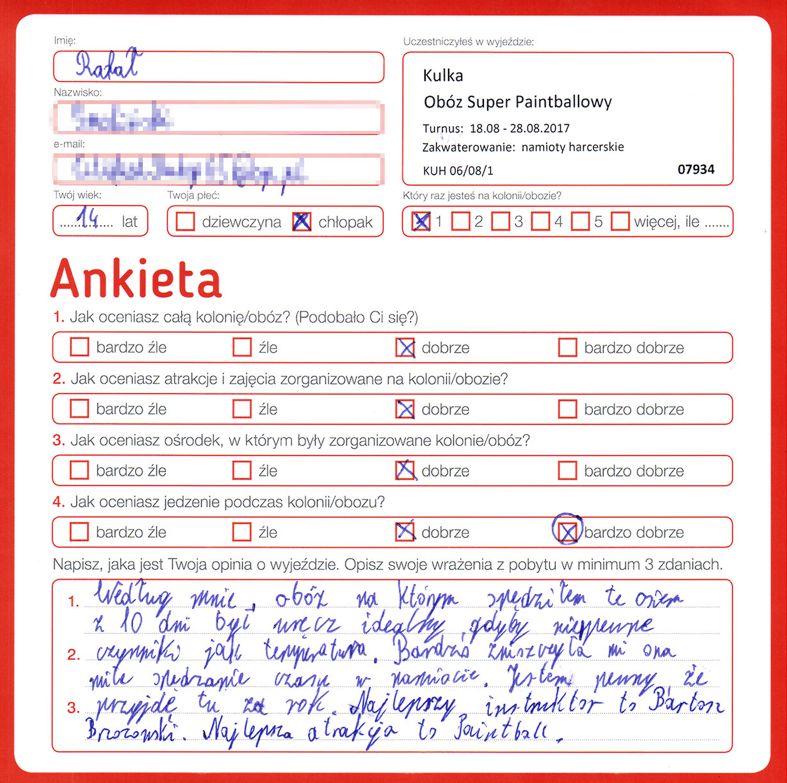 Imię:
Rafał
Uczestniczyłeś w wyjeździe:
Kulka
Obóz Super Paintballowy
Turnus: 18.08 - 28.08.2017
Zakwaterowanie: namioty harcerskie
KUH 06/08/1 07934
Nazwisko:
e-mail:
Twój wiek:
14 lat
Twoja płeć:
dziewczyna chłopak
Który raz jesteś na kolonii/obozie?
1 2 3 4 5 więcej, ile .......
Ankieta
1. Jak oceniasz całą kolonię/obóz? (Podobało Ci się?)
bardzo źle źle dobrze bardzo dobrze
2. Jak oceniasz atrakcje i zajęcia zorganizowane na kolonii/obozie?
bardzo źle źle dobrze bardzo dobrze
3. Jak oceniasz ośrodek, w którym były zorganizowane kolonie/obóz?
bardzo źle źle dobrze bardzo dobrze
4. Jak oceniasz jedzenie podczas kolonii/obozu?
bardzo źle źle dobrze bardzo dobrze
Napisz, jaka jest Twoja opinia o wyjeździe. Opisz swoje wrażenia z pobytu w minimum 3 zdaniach.
1. Według mnie, obóz na którym spędziłem te osiem
z 10 dni był wręcz idealny gdyby nie pewne
2. czynniki jak temperatura. Bardzo zniszczyła mi ona
miłe spędzanie czasu w namiocie. Jestem pewny że
3. przyjdę tu za rok. Najlepszy instruktor to Bartosz
Brzozowski. Najlepsza atrakcja to Paintball.